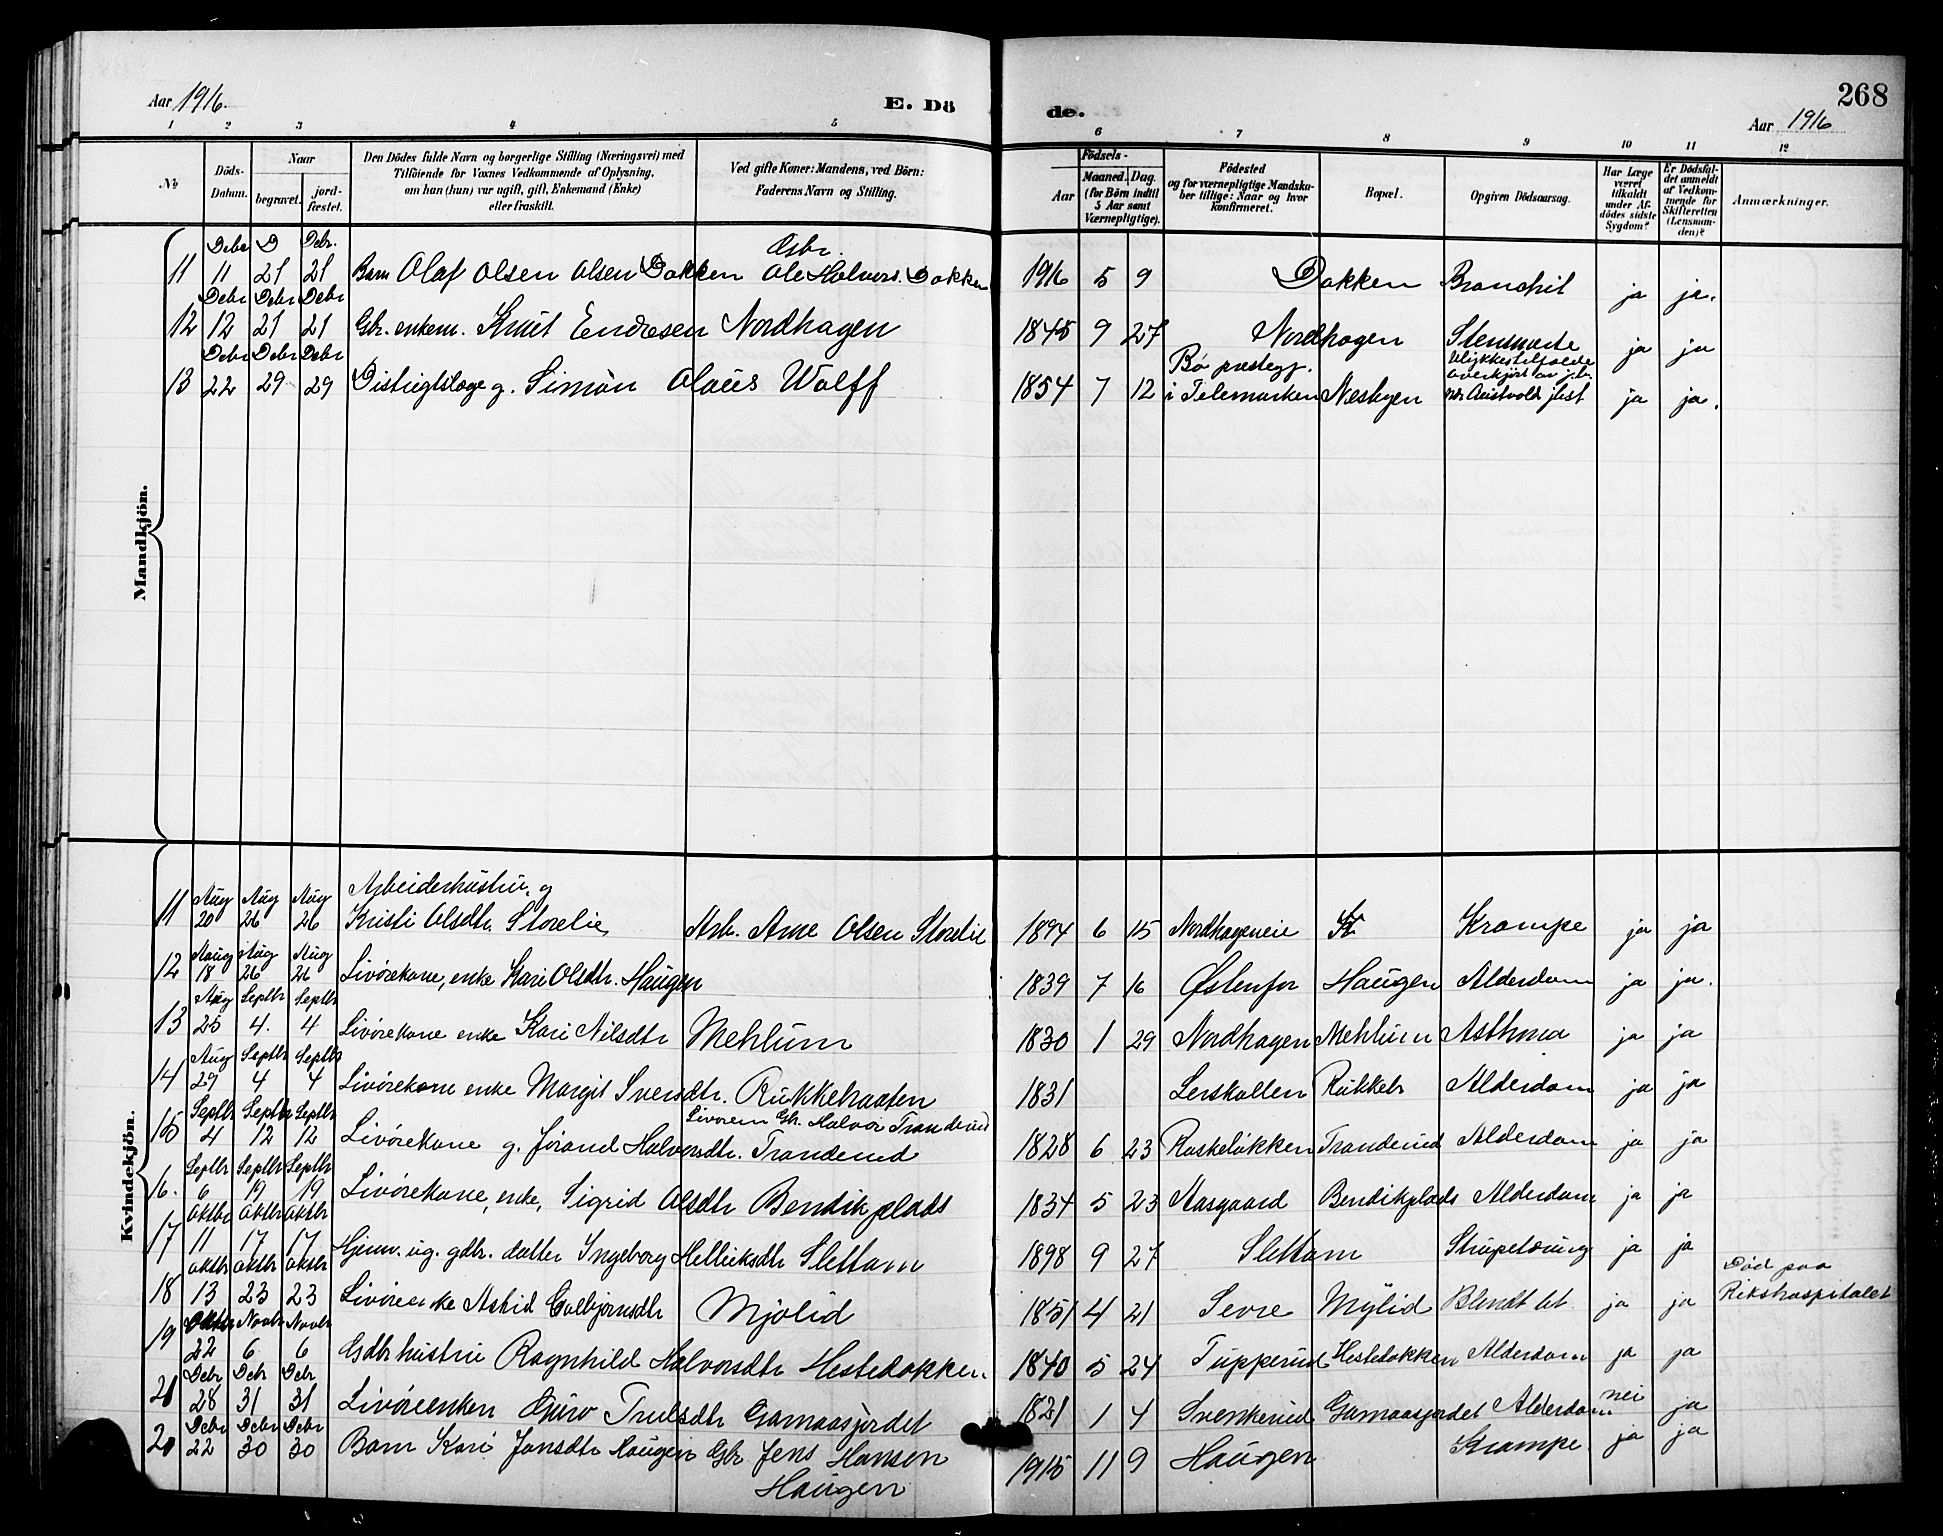 268
Aar 1916.
E. Dö
de.
Aar 1916
1 2 3 4 5 6 7 8 9 10 11 12
№
Döds-Datum.
Naar
begravet.
jord-fæstet.
Den Dödes fulde Navn og borgerlige Stilling (Næringsvei) med
Tilföiende for Voxnes Vedkommende af Oplysning,
om han (hun) var ugift, gift, Enkemand (Enke)
eller fraskilt.
Ved gifte Koner: Mandens, ved Börn:
Faderens Navn og Stilling.
Födsels-
Aar
Maaned. Dag.
(for Börn indtil
5 Aar samt
Værnepligtige).
Födested
og for værnepligtige Mandska-
ber tillige: Naar og hvor
konfirmeret.
Bopæl.
Opgiven Dödsaarsag.
Har Læge
været
tilkaldt
under Af-
dödes sidste
Sygdom?
Er Dödsfal-
det anmeldt
af Vedkom-
mende for
Skifteretten
(Lensman-
den)?
Anmærkninger.
Mandkjön.
11 Debr 11 D 21 Debr. 21 Barn Olaf Olsen Olsen Dokken Ole Halvors. Dokken 1916 5 9 Dokken Bronchit ja ja.
12 Debr 12 Debr 21 Debr 21 Gbr. enkem. Knut Endresen Nordhagen 1845 9 27 Nordhagen ja ja
13 Debr 22 Debr 29 Debr 29 Distrigtslæge g. Simon Olaus Wolff 1854 7 12 Bø prestegj. i Telemarken Nesbyen Ulykkestilfælde overkjört av ja ja.
Kvindekjön.
11 Aug 20 Aug 26 Aug 26 Arbeiderhustru, g Kristi Olsdtr. Storelie Arb. Arne Olsen Storelie 1894 6 15 Nordhageneie Krampe ja ja
12 Aaug 18 Aug 26 Aug 26 Livörekone, enke Kari Olsdtr. Haugen 1839 7 16 Østenfor Haugen Alderdom ja ja.
13 Aug 25 Septbr 4. Septbr 4 Livörekone enke Kari Nilsdtr Mehlum 1830 1 29 Nordhagen Mehlum Asthma ja ja
14 Aug 29 Septbr 4 Septbr 4 Livörekone enke Margit Svensdtr. Rukkebraaten 1831 Lerskallen Rukkebr Alderdom ja ja
15 Septbr 4 Septbr 12 Septbr 12 Livörekone g. Jörand Halvorsdtr. Tranderud Livörem Gbr. Halvor Tranderud 1828 6 23 Roskelökken Tranderud Alderdom ja ja
16. Septbr 6 Septbr 19 Septbr 19 Livörekone, enke, Sigrid Olsdtr Bendikplads 1834 5 23 Aasgaard Bendikplads Alderdom ja ja
17 Oktbr 11 Oktbr 17 Oktbr 17 Hjemv. ug. gdbr. datter Ingeborg Helleiksdtr Slettom 1898 9 27 Slettom Strupetæring ja ja
18 Oktbr 13 Oktbr 23 Oktbr 23 Livöreenke Astrid Embjörnsdtr Mjölid 1851 4 21 Sevre Mylid Blindt. bet. ja ja Död paa Rikshospitalet
19 Oktbr 22 Novbr 6 Novbr 6 Gdbr hustru Ragnhild Halvorsdtr Hestedokken. 1840 5 24 Tupperud Hestedokken Alderdom ja ja
20 Debr 28 Debr 31 Debr 31 Livöreenken Guro Trulsdtr Gamaasjordet 1821 1 4 Svenkerud Gamaasjordet Alderdom nei ja
20 Debr 22 Debr 30 Debr 30 Barn Kari Jensdtr Haugen Gbr Jens Hansen Haugen 1915 11 9 Haugen Krampe ja ja